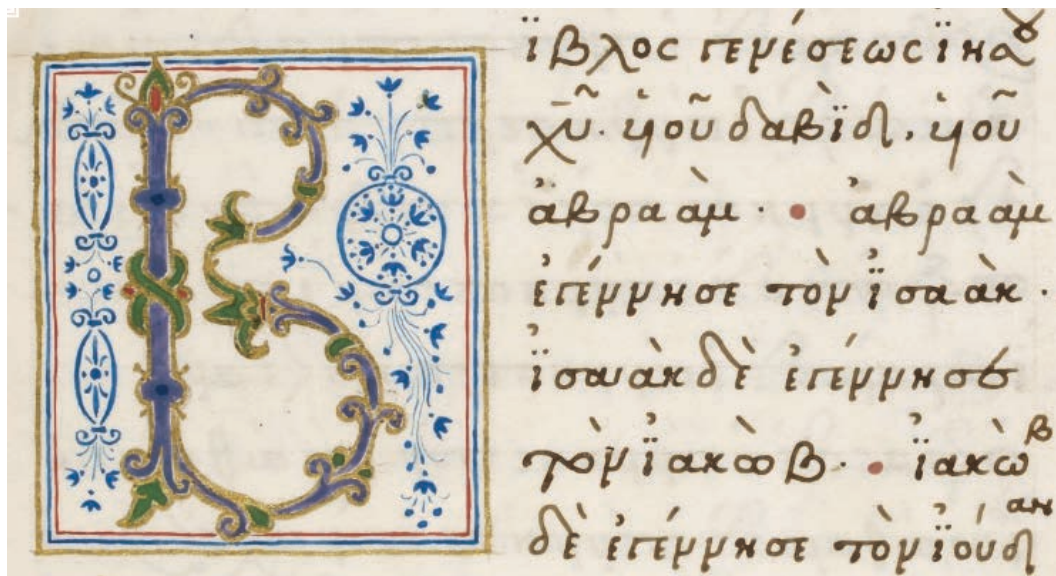 Βίβλος γενέσεως ἰησοῦ
χῦ. υἱοῦ δαβὶδ. υἱοῦ
ἀβραάμ · ἀβραὰμ
ἐγέννησε τὸν ἰσαάκ ·
ἰσαὰκ δὲ ἐγέννησε
τὸν ἰακώβ · ἰακὼβ
δὲ ἐγέννησε τὸν ἰούδαν